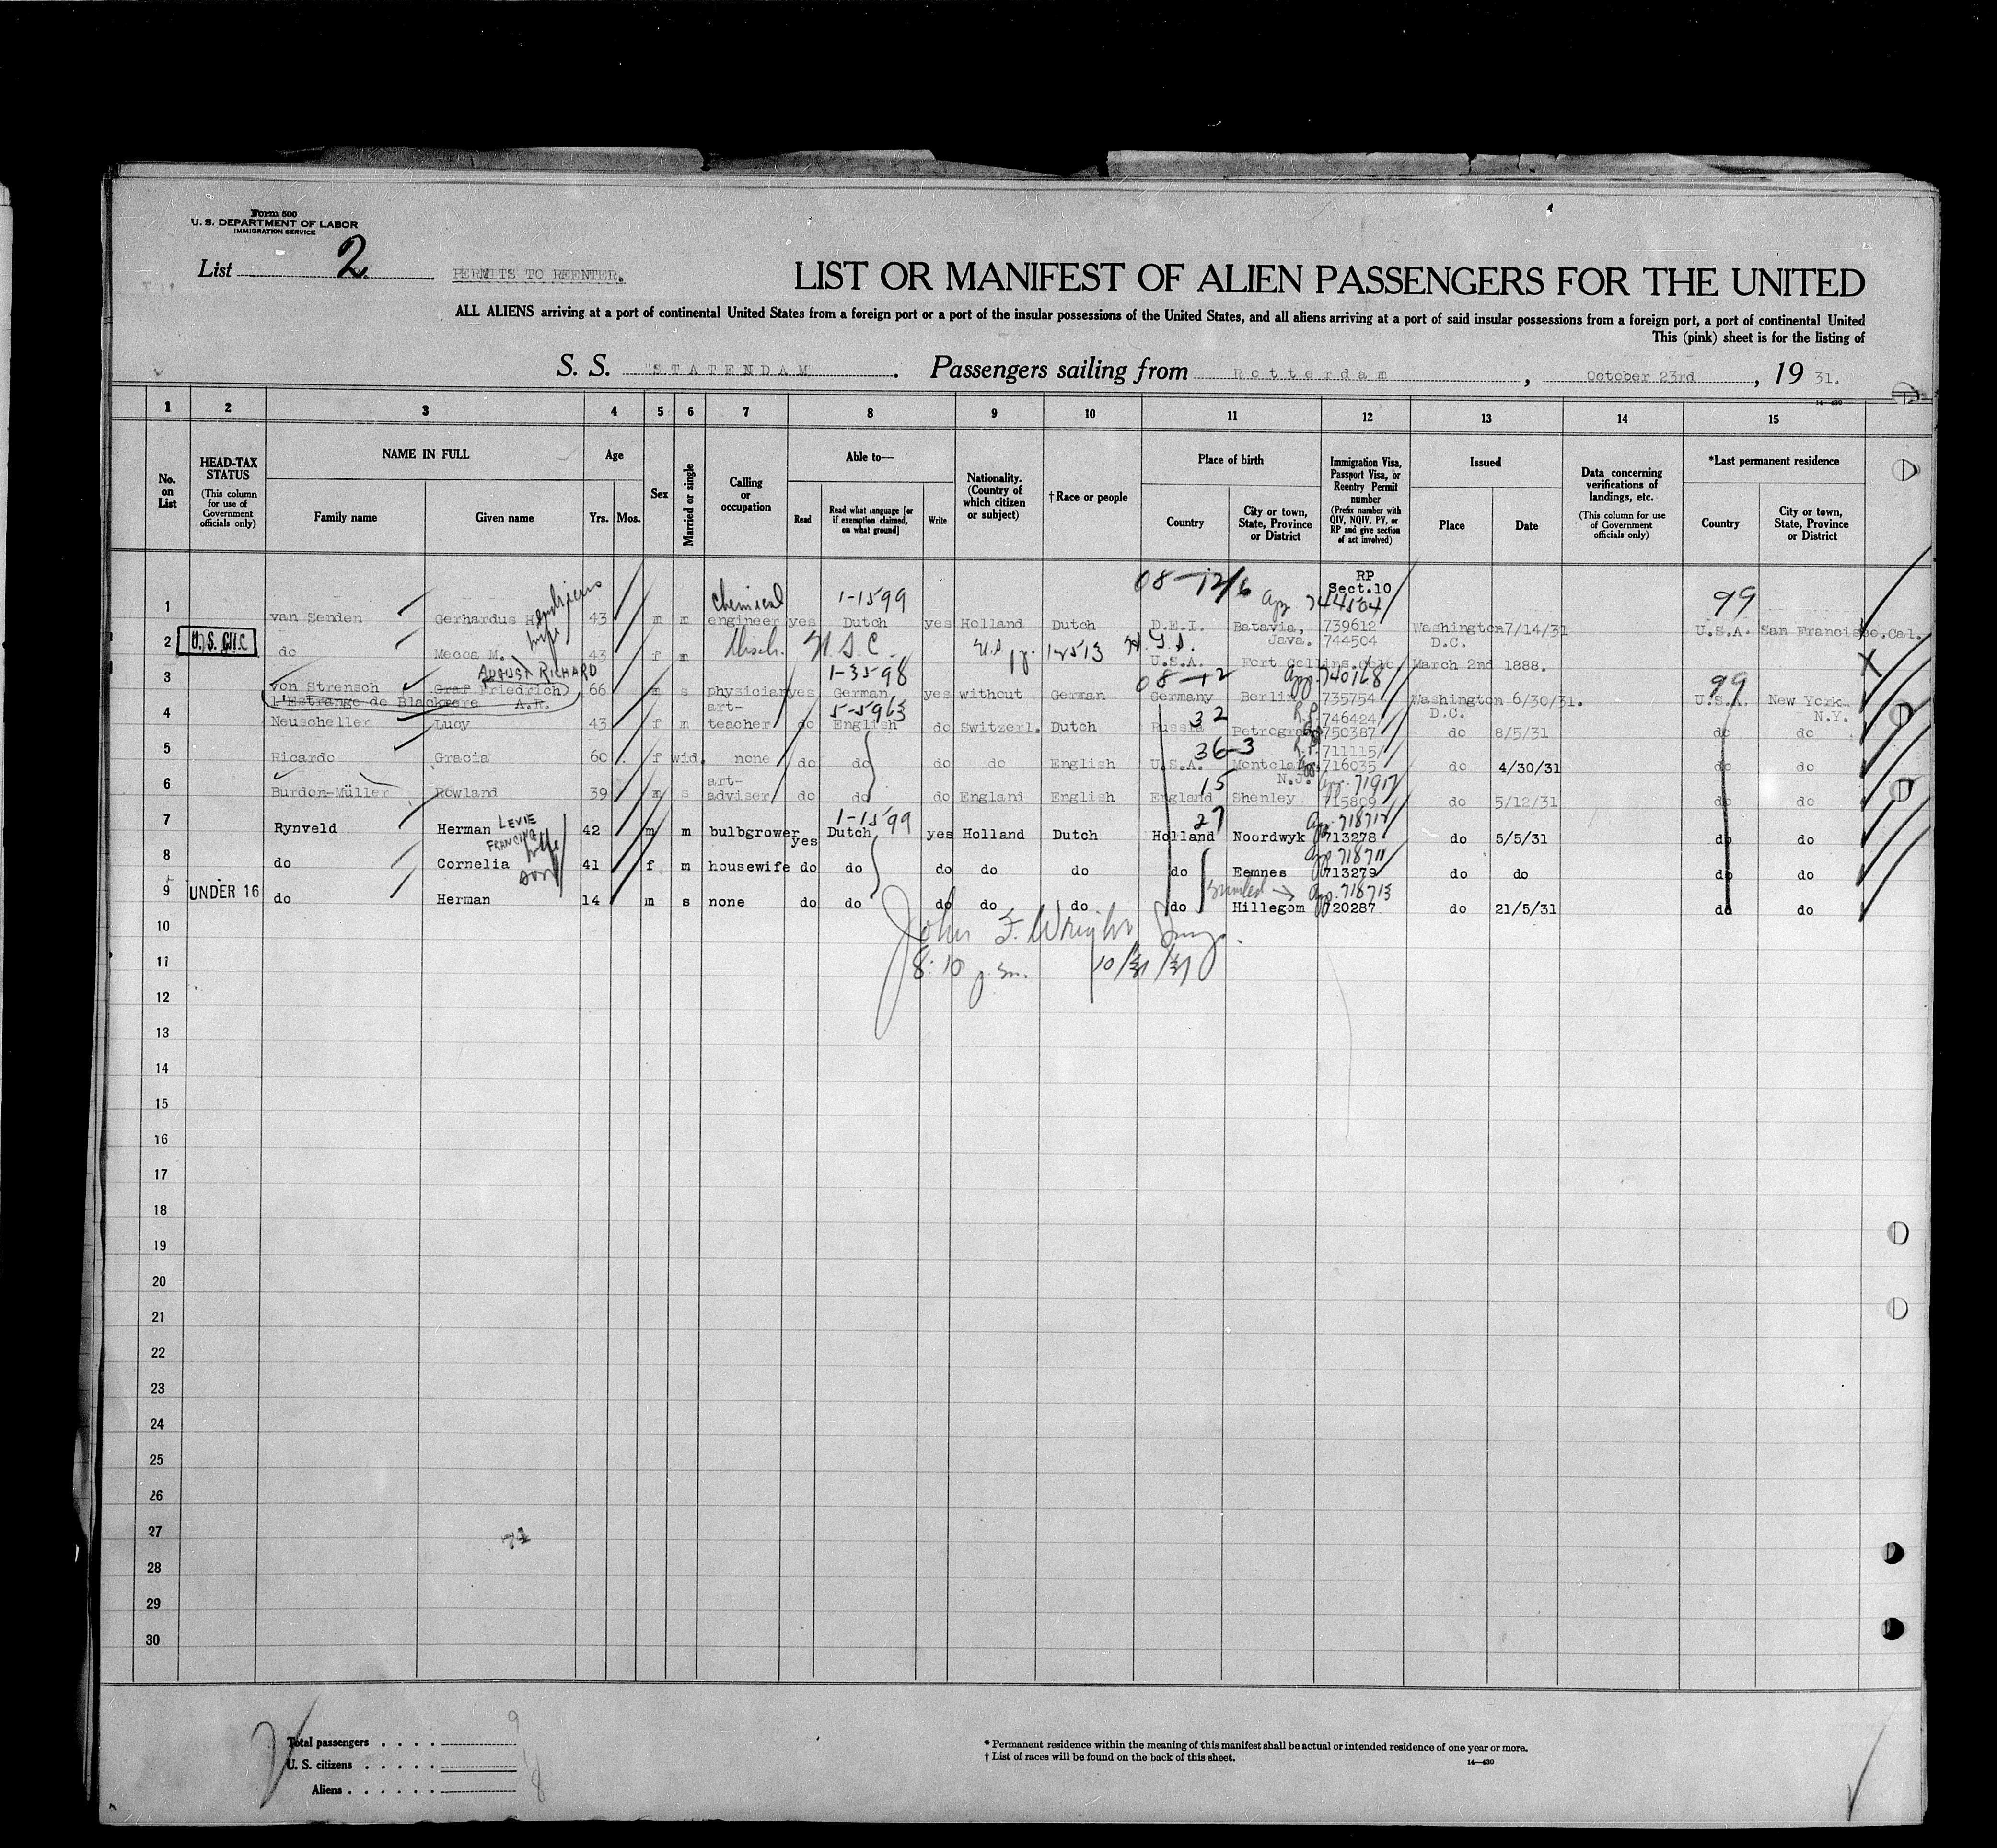 Form 500
U. S. DEPARTMENT OF LABOR
IMMIGRATION SERVICE
List 2 PERMITS TO REENTER.
LIST OR MANIFEST OF ALIEN PASSENGERS FOR THE UNITED
ALL ALIENS arriving at a port of continental United States from a foreign port or a port of the insular possessions of the United States, and all aliens arriving at a port of said insular possessions from a foreign port, a port of continental United
This (pink) sheet is for the listing of
S. S. "STATENDAM" . Passengers sailing from Rotterdam , October 23rd , 19 31.
14—430
1 2 3 4 5 6 7 8 9 10 11 12 13 14 15
No. on List
HEAD-TAX STATUS (This column for use of Government officials only)
NAME IN FULL
Family name Given name
Age
Yrs. Mos.
Sex
Married or single
Calling or occupation
Able to—
Read Read what language [or if exemption claimed, on what ground] Write
Nationality. (Country of which citizen or subject)
† Race or people
Place of birth
Country City or town, State, Province or District
Immigration Visa, Passport Visa, or Reentry Permit number (Prefix number with QIV, NQIV, PV, or RP and give section of act involved)
Issued
Place Date
Data concerning verifications of landings, etc. (This column for use of Government officials only)
*Last permanent residence
Country City or town, State, Province or District
RP
Sect.10
chemical 1-1599 08-12/6 app 744504 99
1 van Senden Gerhardus H. Hendricus 43 m m engineer yes Dutch yes Holland Dutch D.E.I. Batavia, Java. 739612 744504 Washington D.C. 7/14/31 U.S.A. San Francisco.Cal.
2 U.S. CIT. do Mecca M. wife 43 f m U.S.C. U.S. U.S.A. Fort Collins.Colo. March 2nd 1888.
AUGUST RICHARD 1-3598 08-12 app. 740168 99
3 von Strensch Graf Friedrich) 66 m s physician yes German yes without German Germany Berlin 735754 Washington D.C. 6/30/31. U.S.A. New York N.Y.
l'Estrange de Blackmere A.R.
5-5963 32
4 Neuscheller Lucy 43 f m art-teacher do English do Switzerl. Dutch Russia Petrograd R.P. 746424 750387 do 8/5/31 do do
36-3
5 Ricardo Gracia 60 f wid. none do do do do English U.S.A. Montclair N.J. R.P. 711115 716035 do 4/30/31 do do
15 app. 71917
6 Burdon-Müller Rowland 39 m s art-adviser do do do England English England Shenley 715809 do 5/12/31 do do
1-1599 27 app 718712
7 Rynveld Herman LEVIE 42 m m bulbgrower yes Dutch yes Holland Dutch Holland Noordwyk 713278 do 5/5/31 do do
FRANCINA wife app 718711
8 do Cornelia 41 f m housewife do do do do do do Eemnes 713279 do do do do
son app. 718713
9 UNDER 16 do Herman 14 m s none do do do do do do Hillegom 720287 do 21/5/31 do do
John F. Wright
8:10 p.m. 10/31/31
10
11
12
13
14
15
16
17
18
19
20
21
22
23
24
25
26
27
28
29
30
Total passengers . . . . 9
U. S. citizens . . . . . 1
Aliens . . . . . . 8
* Permanent residence within the meaning of this manifest shall be actual or intended residence of one year or more.
† List of races will be found on the back of this sheet.
14—430